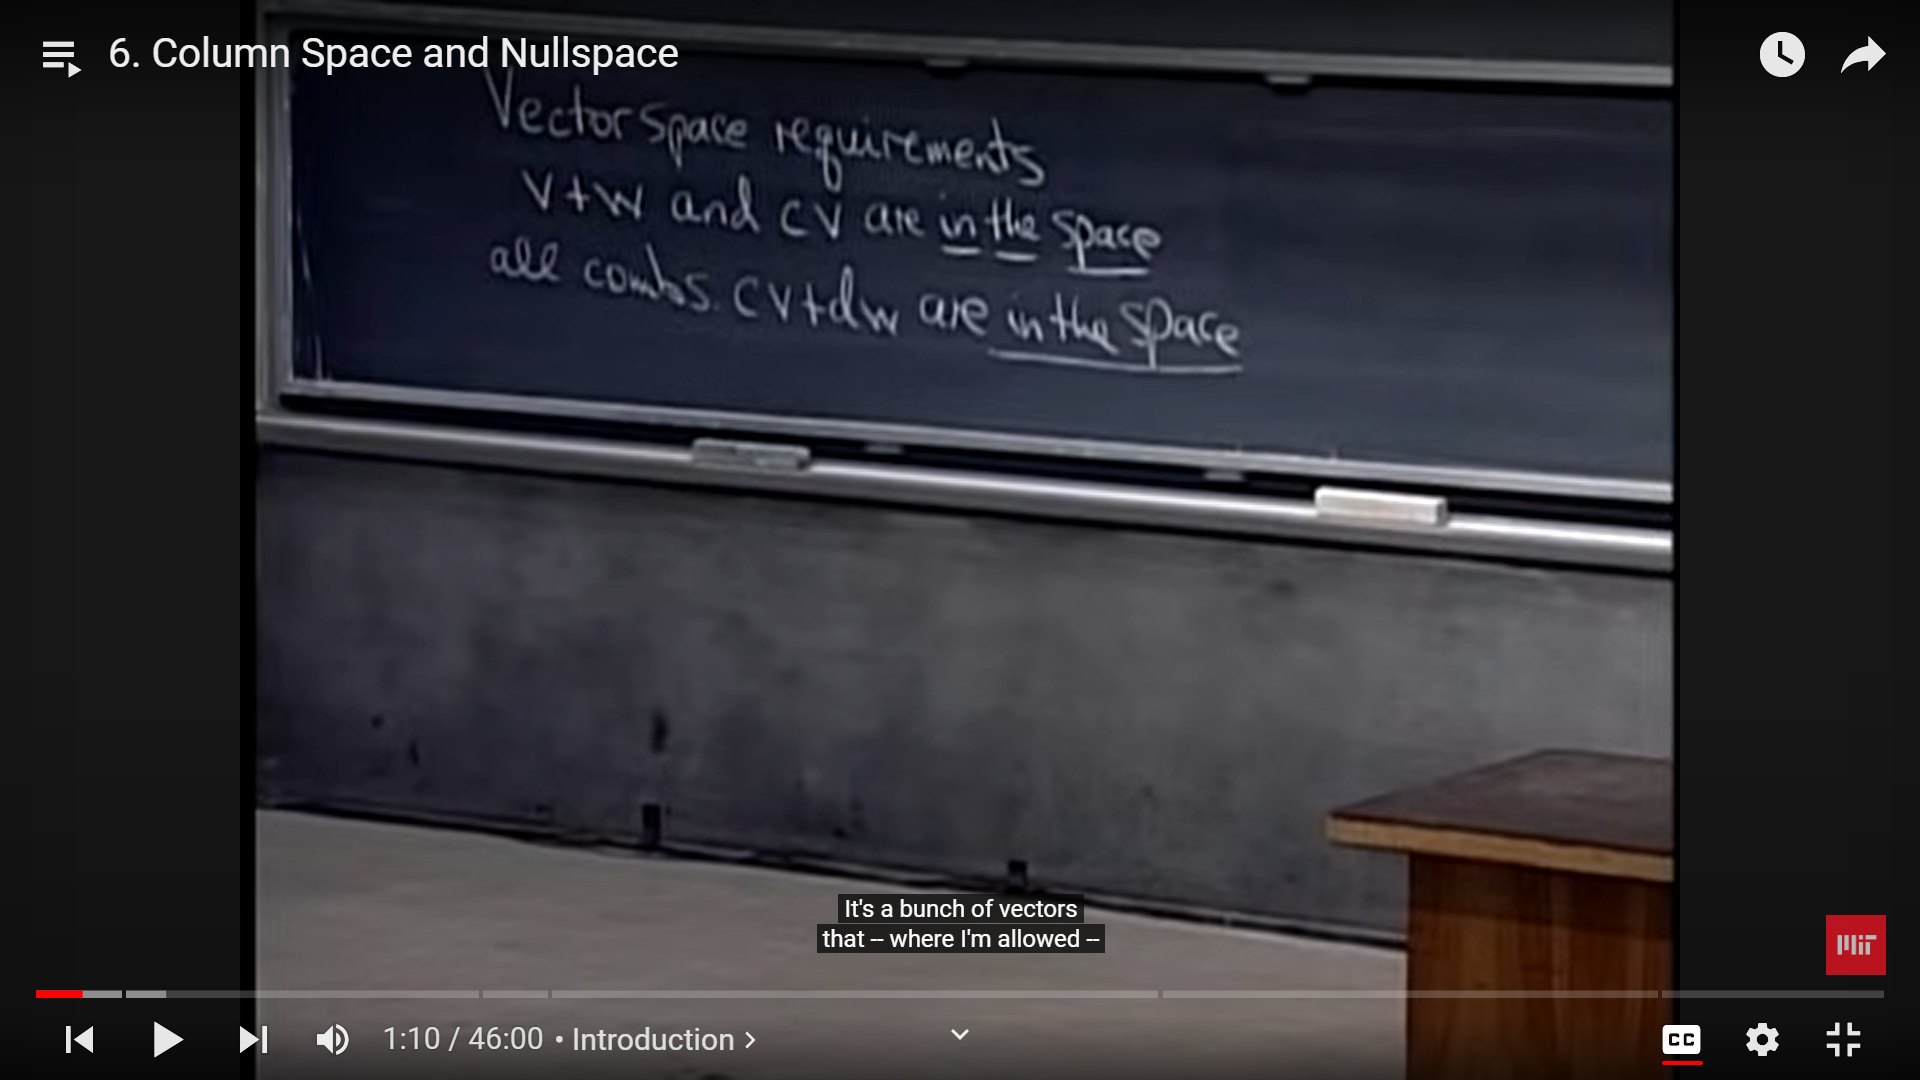 6. Column Space and Nullspace
Vector space requirements
v+w and cv are in the space
all combs. cv+dw are in the space
It's a bunch of vectors
that -- where I'm allowed --
MIT
1:10 / 46:00 • Introduction >
CC